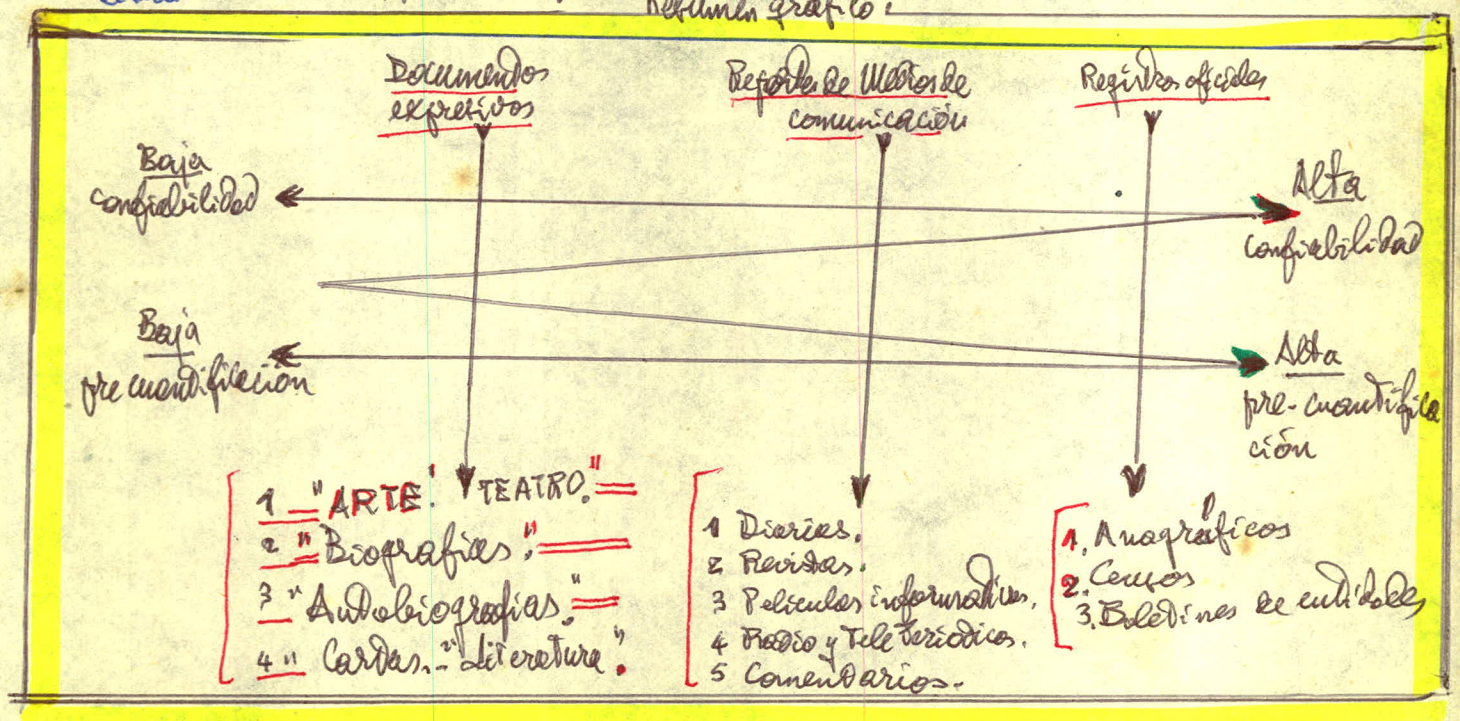 Resumen gráfico:
Documentos
expresivos
Reportes de Medios de
comunicación
Registros oficiales
Baja
confiabilidad
Alta
confiabilidad
Baja
precuantificación
Alta
pre-cuantifica
ción
1 "ARTE". TEATRO."
2 "Biografías".
3 " Autobiografías."
4 " Cartas.- "Literatura".
1 Diarios.
2 Revistas.
3 Películas informativas.
4 Radio y Tele Periodicos.
5 Comentarios.-
1. Anagráficos
2. Censos
3. Boletines de entidades